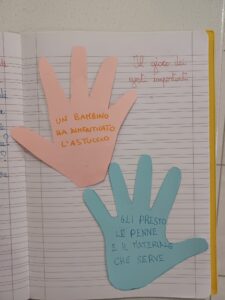 Il gioco dei
gesti importanti
UN BAMBINO
HA DIMENTICATO
L'ASTUCCIO
GLI PRESTO
LE PENNE
E IL MATERIALE
CHE SERVE